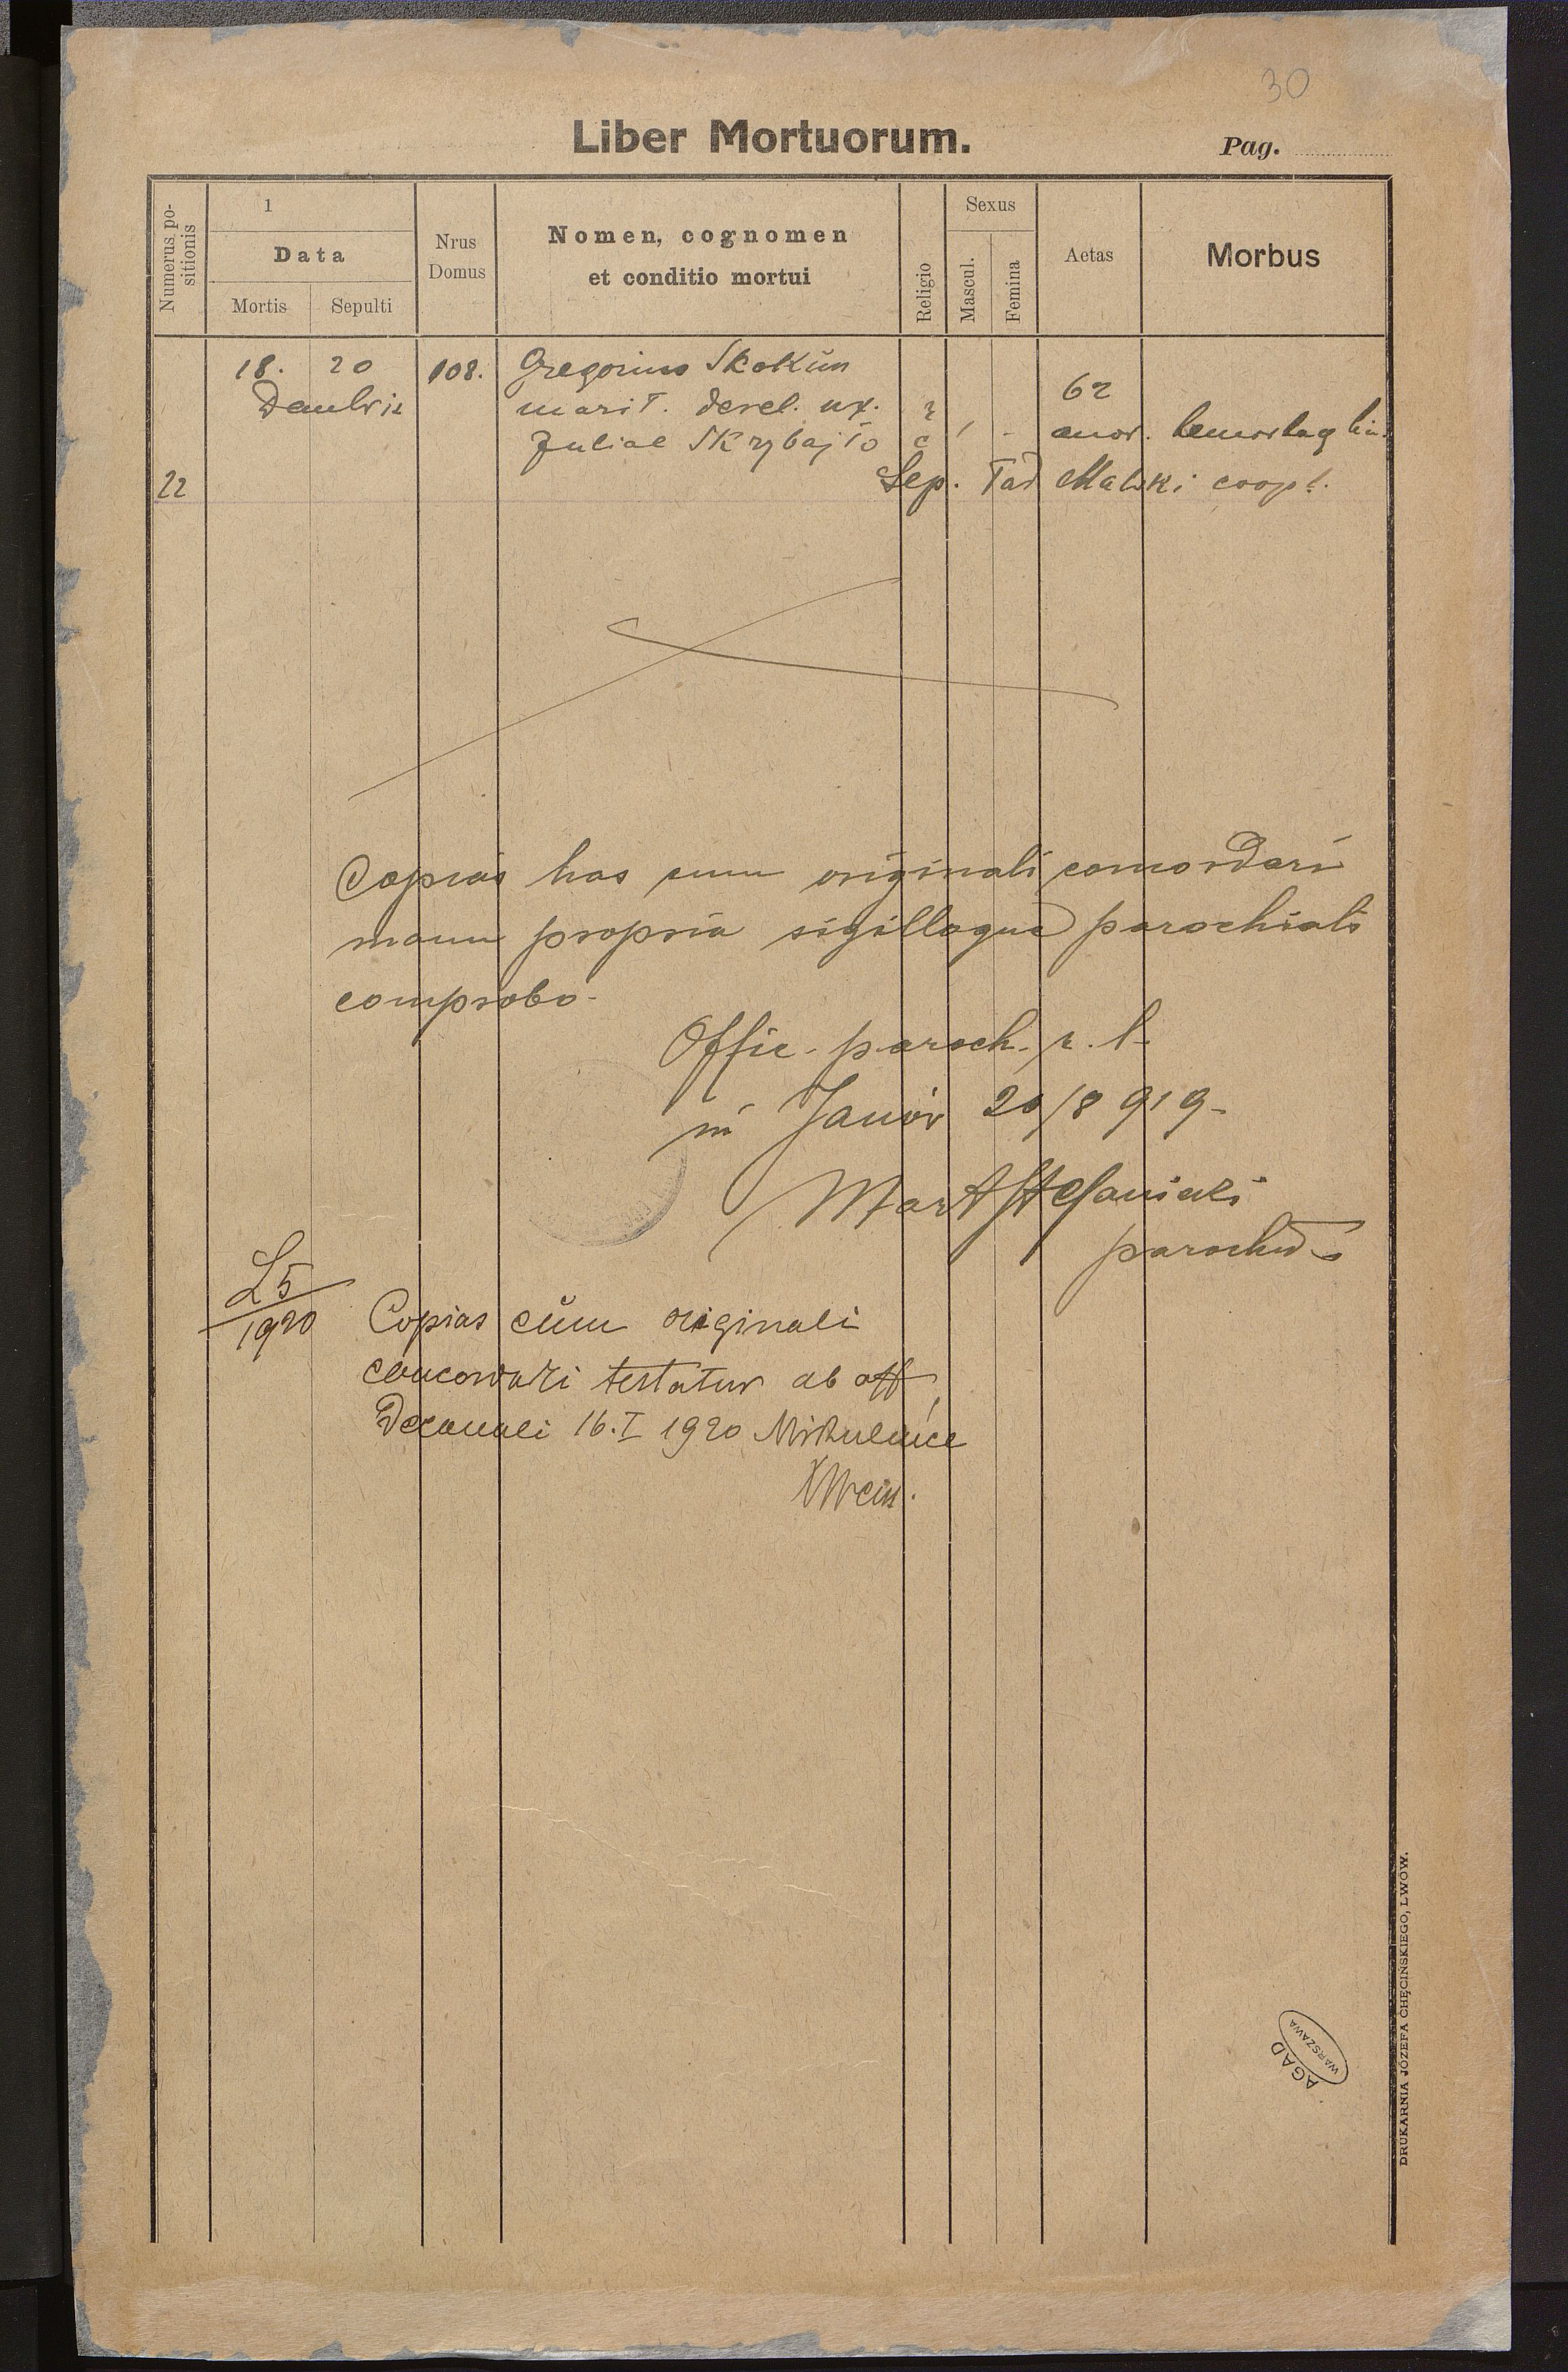 30
Liber Mortuorum.
Pag.
Numerus positionis
1
Data
Mortis
Sepulti
Nrus Domus
Nomen, cognomen
et conditio mortui
Religio
Sexus
Mascul.
Femina
Aetas
Morbus
18. 20 108. Gregorius Skokŭn
marit. derel. ux. r 62
Juliae Skrybajło c / - annor.
22 Sep. Tad Malski coop.
Copias has cum originali concordari
manu propria sigilloque parochiali
comprobo-
Offic. paroch. r. l.
in Janów 20/8 919-
Mart Stefanicki
parochus
L5
1920
Copias cŭm originali
concordari testatur ab off.
Decanali 16. I 1920 Mikulińce
AGAD
WARSZAWA
DRUKARNIA JÓZEFA CHĘCIŃSKIEGO, LWÓW.